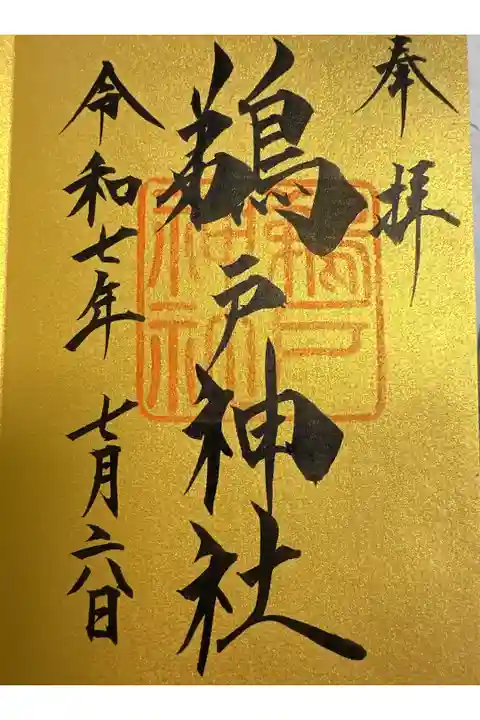 奉拝
鵜戸神社
鵜戸
神社
令和七年 七月二八日